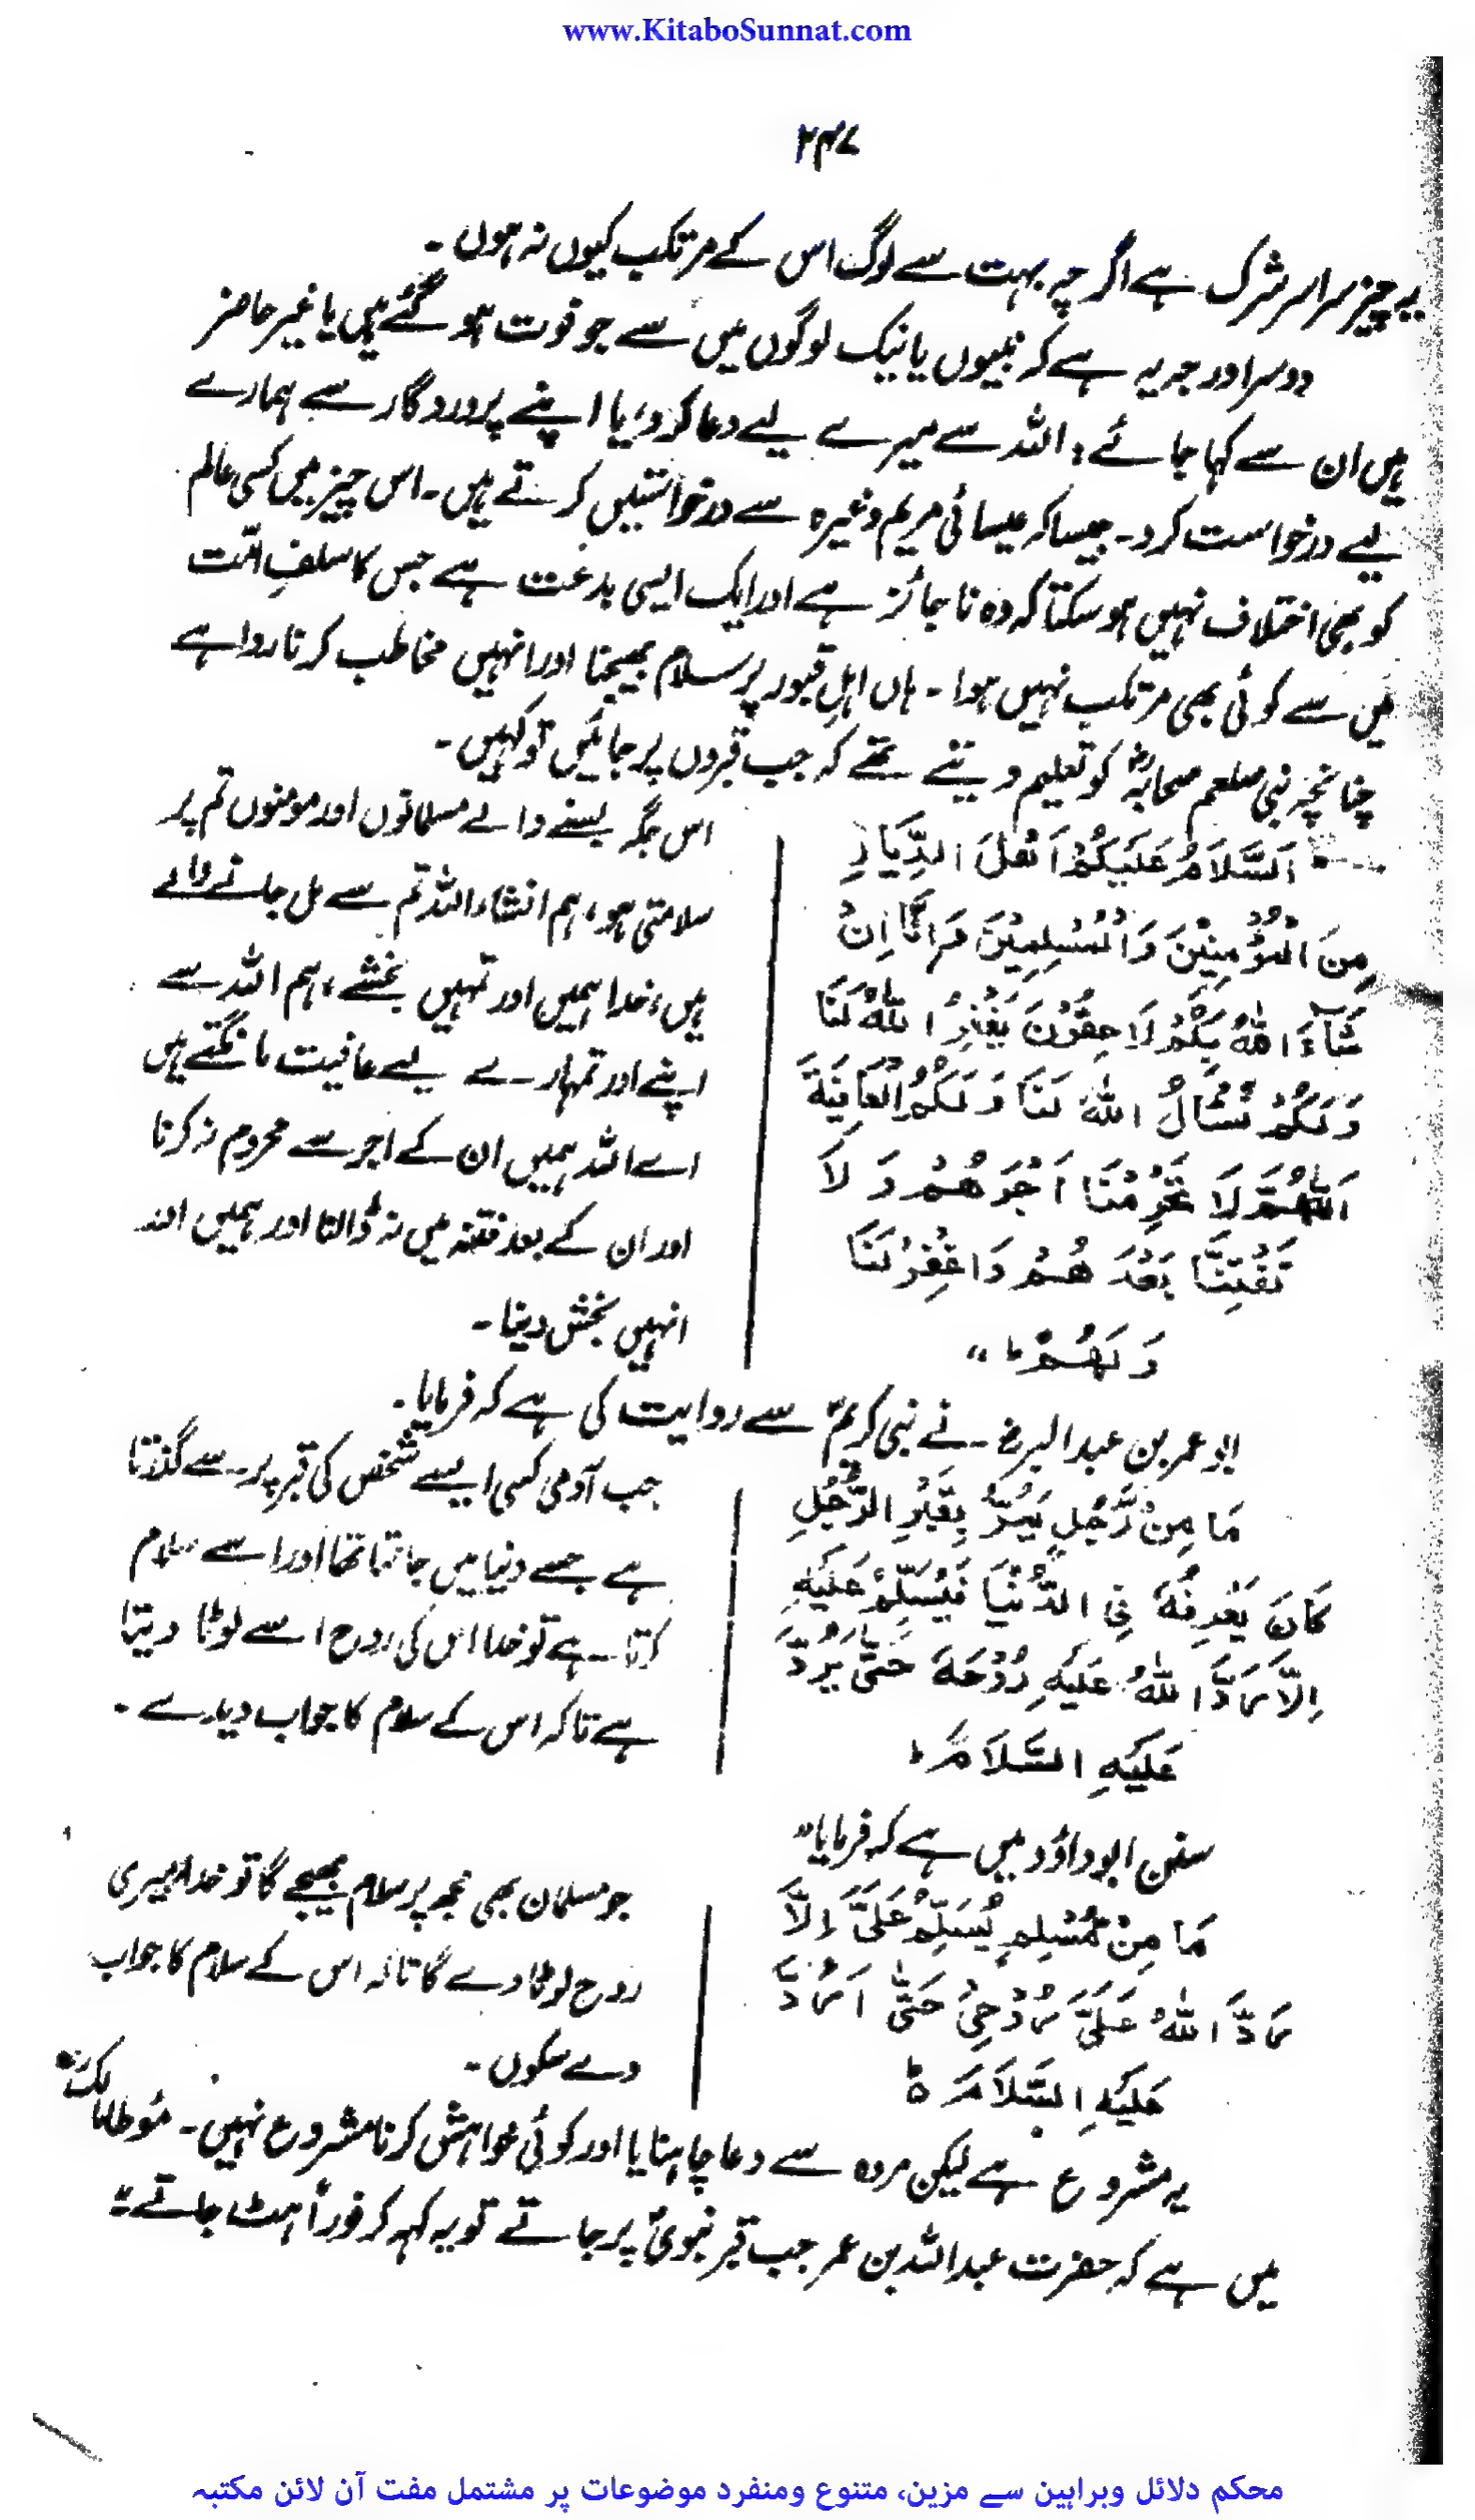 www.KitaboSunnat.com
۲۴۷
یہ چیز سراسر شرک ہے اگرچہ بہت سے لوگ اس کے مرتکب کیوں نہ ہوں۔
دوسرا درجہ یہ ہے کہ نبیوں یا نیک لوگوں میں سے جو فوت ہو گئے ہیں یا غیر حاضر
ہیں ان سے کہا جائے: اللہ سے میرے لیے دعا کرو، یا اپنے پروردگار سے ہمارے
لیے درخواست کرو۔ جیسا کہ عیسائی مریم وغیرہ سے درخواستیں کرتے ہیں۔ اس چیز میں کسی عالم
کو بھی اختلاف نہیں ہو سکتا کہ وہ ناجائز ہے اور ایک ایسی بدعت ہے جس کا سلفِ امّت
میں سے کوئی بھی مرتکب نہیں ہوا۔ ہاں اہلِ قبور پر سلام بھیجنا اور انہیں مخاطب کرنا روا ہے
چنانچہ نبی صلعم صحابہؓ کو تعلیم دیتے تھے کہ جب قبروں پر جائیں تو کہیں۔
اَلسَّلَامُ عَلَیْکُمْ اَھْلَ الدِّیَارِ
مِنَ الْمُؤْمِنِیْنَ وَالْمُسْلِمِیْنَ وَاِنَّا اِنْ
شَآءَ اللّٰہُ بِکُمْ لَاحِقُوْنَ یَغْفِرُ اللّٰہُ لَنَا
وَلَکُمْ نَسْئَالُ اللّٰہَ لَنَا وَلَکُمُ الْعَافِیَۃَ
اَللّٰھُمَّ لَا تَحْرِمْنَا اَجْرَھُمْ وَلَا
تَفْتِنَّا بَعْدَ ھُمْ وَاغْفِرْلَنَا
وَلَھُمْ ط "
اس جگہ بسنے والے مسلمانوں اور مومنوں تم پر
سلامتی ہو، ہم انشاءاللہ تم سے مل جانے والے
ہیں، خدا ہمیں اور تمہیں بخشے، ہم اللہ سے
اپنے اور تمہارے لیے عافیت مانگتے ہیں
اے اللہ ہمیں ان کے اجر سے محروم نہ کرنا
اور ان کے بعد فتنہ میں نہ ڈالنا اور ہمیں اور
انہیں بخش دینا۔
ابو عمر بن عبد البر نے نبی کریمؐ سے روایت کی ہے کہ فرمایا۔
مَا مِنْ رَّجُلٍ یَمُرُّ بِقَبْرِ الرَّجُلِ
کَانَ یَعْرِفُہٗ فِی الدُّنْیَا فَیُسَلِّمُ عَلَیْہِ
اِلَّا رَدَّ اللّٰہُ عَلَیْہِ رُوْحَہٗ حَتّٰی یَرُدَّ
عَلَیْہِ السَّلَامَ ط
جب آدمی کسی ایسے شخص کی قبر پر سے گذرتا
ہے جسے دنیا میں جانتا تھا اور اسے سلام
کرتا ہے تو خدا اس کی روح اسے لوٹا دیتا
ہے تاکہ اس کے سلام کا جواب دیدے۔
سنن ابو داؤد میں ہے کہ فرمایا"
مَا مِنْ مُّسْلِمٍ یُسَلِّمُ عَلَیَّ اِلَّا
رَدَّ اللّٰہُ عَلَیَّ رُوْحِیْ حَتّٰی اَرُدَّ
عَلَیْہِ السَّلَامَ ہ
جو مسلمان بھی مجھ پر سلام بھیجے گا تو خدا میری
روح لوٹا دے گا تاکہ اس کے سلام کا جواب
دے سکوں۔
یہ مشروع ہے لیکن مردہ سے دعا چاہنا یا اور کوئی خواہش کرنا مشروع نہیں۔ مؤطا امام مالکؒ
میں ہے کہ حضرت عبداللہ بن عمر جب قبر نبویؐ پر جاتے تو یہ کہہ کر فوراً ہٹ جاتے:
محکم دلائل وبراہین سے مزین، متنوع ومنفرد موضوعات پر مشتمل مفت آن لائن مکتبہ